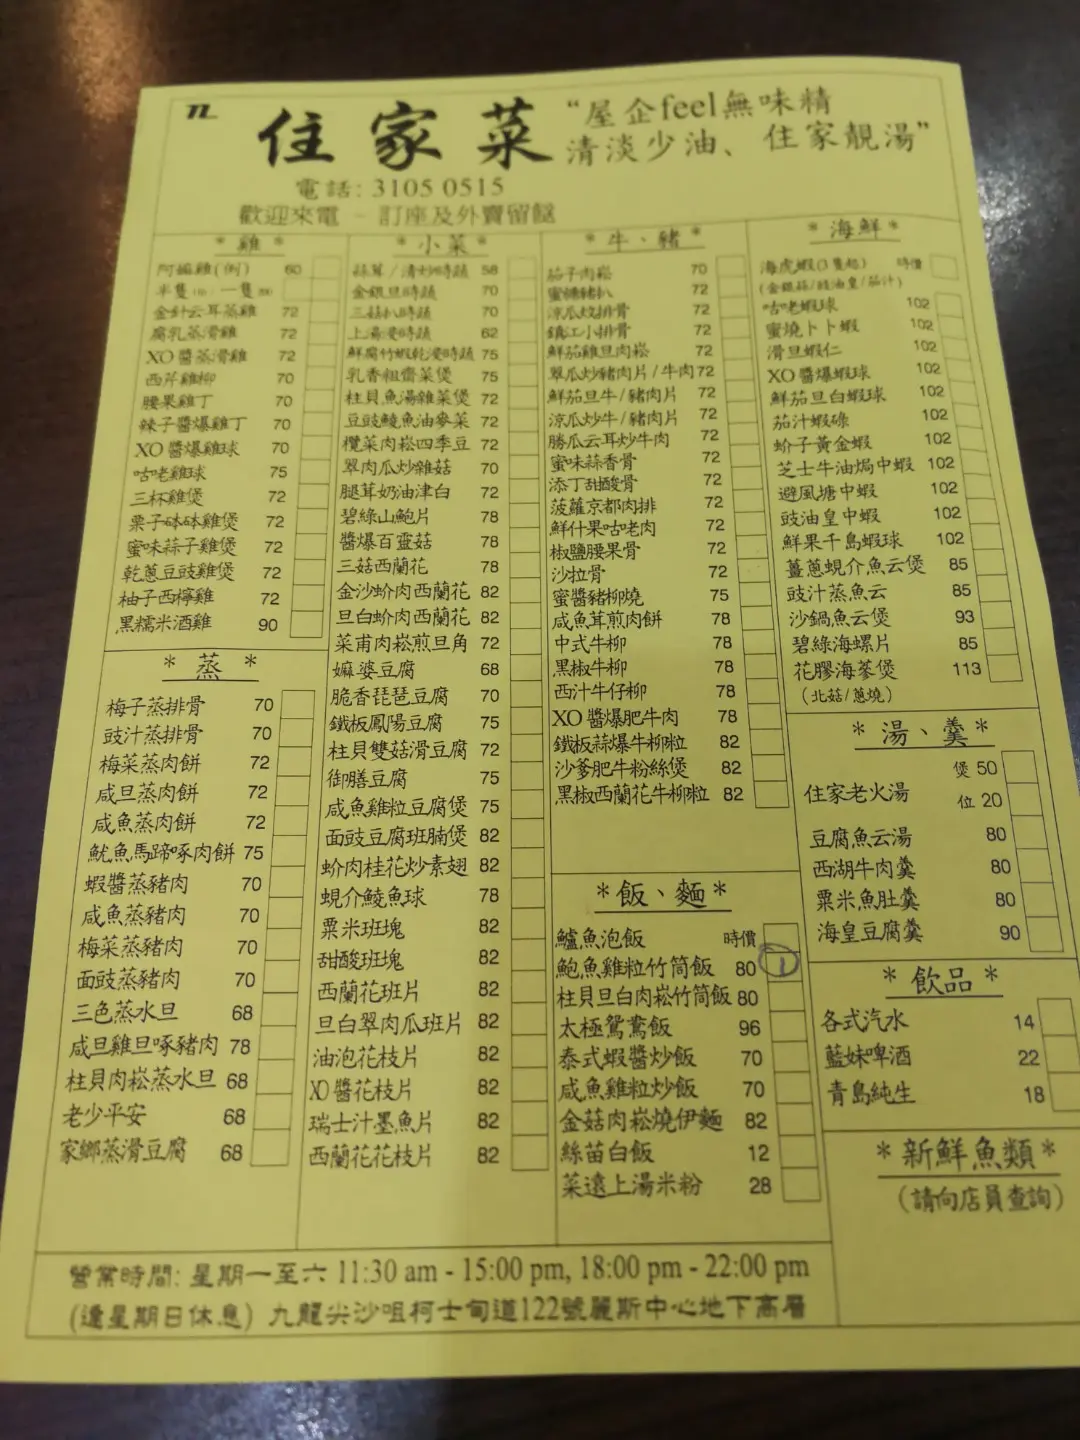 住家菜
“屋企feel無味精
清淡少油、住家靚湯”
電話: 3105 0515
歡迎來電 - 訂座及外賣留餸
* 雞 *
阿媽雞(例) 60
半隻 一隻
金針云耳蒸雞 72
腐乳蒸滑雞 72
XO醬蒸滑雞 72
西芹雞柳 70
腰果雞丁 70
辣子醬爆雞丁 70
XO醬爆雞球 70
咕老雞球 75
三杯雞煲 72
栗子砵砵雞煲 72
蜜味蒜子雞煲 72
乾蔥豆豉雞煲 72
柚子西檸雞 72
黑糯米酒雞 90
* 蒸 *
梅子蒸排骨 70
豉汁蒸排骨 70
梅菜蒸肉餅 72
咸旦蒸肉餅 72
咸魚蒸肉餅 72
魷魚馬蹄啄肉餅 75
蝦醬蒸豬肉 70
咸魚蒸豬肉 70
梅菜蒸豬肉 70
面豉蒸豬肉 70
三色蒸水旦 68
咸旦雞旦啄豬肉 78
柱貝肉崧蒸水旦 68
老少平安 68
家鄉蒸滑豆腐 68
* 小菜 *
蒜茸/清炒時蔬 58
金銀旦時蔬 70
三菇扒時蔬 70
上湯浸時蔬 62
鮮腐竹蝦乾浸時蔬 75
乳香粗齋菜煲 75
柱貝魚湯雜菜煲 72
豆豉鯪魚油麥菜 72
欖菜肉崧四季豆 72
翠肉瓜炒雜菇 70
腿茸奶油津白 72
碧綠山鮑片 78
醬爆百靈菇 78
三菇西蘭花 78
金沙蚧肉西蘭花 82
旦白蚧肉西蘭花 82
菜甫肉崧煎旦角 72
嫲婆豆腐 68
脆香琵琶豆腐 70
鐵板鳳陽豆腐 75
柱貝雙菇滑豆腐 72
御膳豆腐 75
咸魚雞粒豆腐煲 75
面豉豆腐班腩煲 82
蚧肉桂花炒素翅 82
蜆介鯪魚球 78
粟米班塊 82
甜酸班塊 82
西蘭花班片 82
旦白翠肉瓜班片 82
油泡花枝片 82
XO醬花枝片 82
瑞士汁墨魚片 82
西蘭花花枝片 82
* 牛、豬 *
茄子肉崧 70
蜜糖豬扒 72
涼瓜炆排骨 72
鎮江小排骨 72
鮮茄雞旦肉崧 72
翠瓜炒豬肉片/牛肉 72
鮮茄旦牛/豬肉片 72
涼瓜炒牛/豬肉片 72
勝瓜云耳炒牛肉 72
蜜味蒜香骨 72
添丁甜酸骨 72
菠蘿京都肉排 72
鮮什果咕老肉 72
椒鹽腰果骨 72
沙拉骨 72
蜜醬豬柳燒 75
咸魚茸煎肉餅 78
中式牛柳 78
黑椒牛柳 78
西汁牛仔柳 78
XO醬爆肥牛肉 78
鐵板蒜爆牛柳粒 82
沙爹肥牛粉絲煲 82
黑椒西蘭花牛柳粒 82
* 飯、麵 *
鱸魚泡飯 時價
鮑魚雞粒竹筒飯 80 1
柱貝旦白肉崧竹筒飯 80
太極鴛鴦飯 96
泰式蝦醬炒飯 70
咸魚雞粒炒飯 70
金菇肉崧燒伊麵 82
絲苗白飯 12
菜遠上湯米粉 28
* 海鮮 *
海虎蝦(3隻起) 時價
(金銀蒜/豉油皇/茄汁)
咕老蝦球 102
蜜燒卜卜蝦 102
滑旦蝦仁 102
XO醬爆蝦球 102
鮮茄旦白蝦球 102
茄汁蝦碌 102
蚧子黃金蝦 102
芝士牛油焗中蝦 102
避風塘中蝦 102
豉油皇中蝦 102
鮮果千島蝦球 102
薑蔥蜆介魚云煲 85
豉汁蒸魚云 85
沙鍋魚云煲 93
碧綠海螺片 85
花膠海蔘煲 113
(北菇/蔥燒)
* 湯、羹 *
煲 50
住家老火湯
位 20
豆腐魚云湯 80
西湖牛肉羹 80
粟米魚肚羹 80
海皇豆腐羹 90
* 飲品 *
各式汽水 14
藍妹啤酒 22
青島純生 18
* 新鮮魚類 *
(請向店員查詢)
營業時間: 星期一至六 11:30 am - 15:00 pm, 18:00 pm - 22:00 pm
(逢星期日休息) 九龍尖沙咀柯士甸道122號麗斯中心地下高層